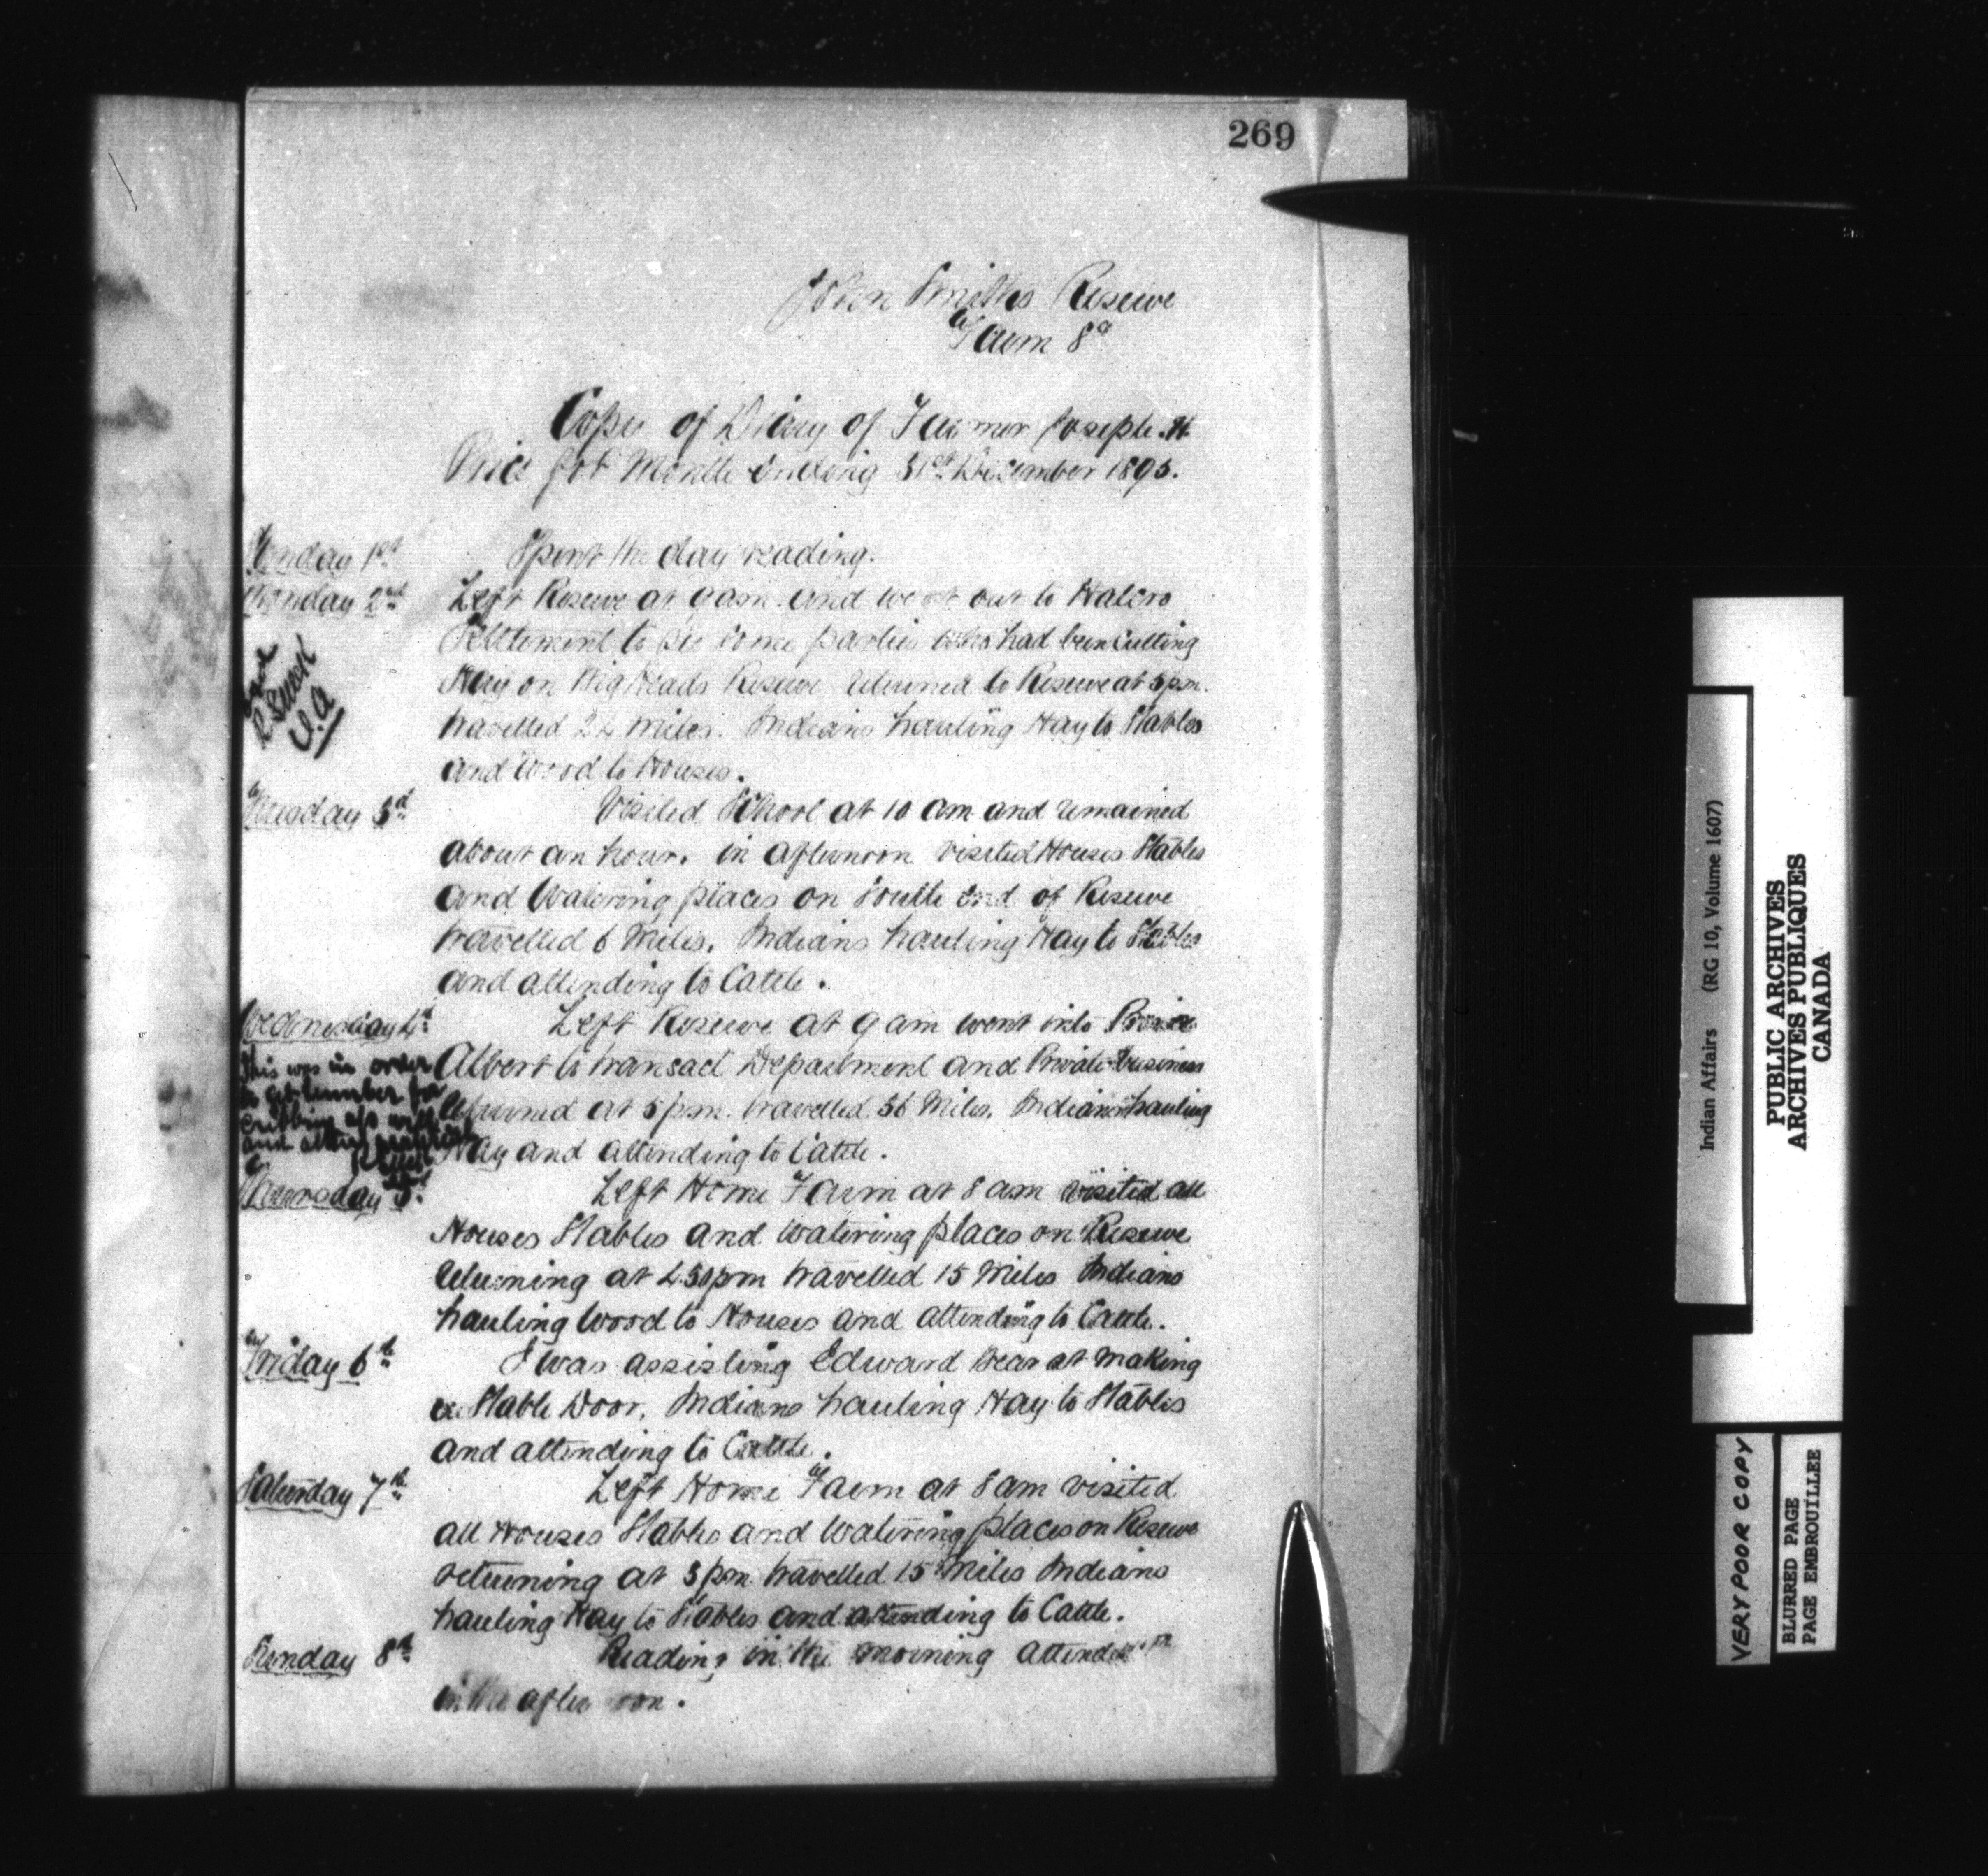 269
John Smiths Reserve
Farm 8a
Copy of Diary of Farmer Joseph H
Price for Month Ending 31st December 1895.
Sunday 1st Spent the day reading.
Monday 2nd Left Reserve at 9 am and went out to Halcro
Settlement to see some parties who had been Cutting
Hay on Big Heads Reserve returned to Reserve at 5 pm.
travelled 24 miles. Indians hauling Hay to Stables
and Wood to Houses.
I.A
Tuesday 3rd Visited School at 10 am and remained
about an hour. in afternoon visited Houses Stables
and Watering places on South End of Reserve
travelled 6 Miles. Indians hauling Hay to Stables
and attending to Cattle.
Wednesday 4th Left Reserve at 9 am went into Prince
Albert to transact Department and Private business
Returned at 5 pm. travelled 36 Miles. Indians hauling
Hay and attending to Cattle.
This was in order
to get lumber for
cribbing of well
and
Thursday 5th Left Home Farm at 8 am visited all
Houses Stables and Watering places on Reserve
Returning at 4.30 pm travelled 15 Miles Indians
hauling Wood to Houses and attending to Cattle.
Friday 6th I was assisting Edward Bear at making
a Stable Door. Indians hauling Hay to Stables
and attending to Cattle.
Saturday 7th Left Home Farm at 8 am visited
all Houses Stables and Watering places on Reserve
returning at 3 pm travelled 15 Miles Indians
hauling Hay to Stables and attending to Cattle.
Sunday 8th Reading in the morning attended
in the afternoon.
Indian Affairs (RG 10, Volume 1607)
PUBLIC ARCHIVES
ARCHIVES PUBLIQUES
CANADA
VERY POOR COPY
BLURRED PAGE
PAGE EMBROUILLEE